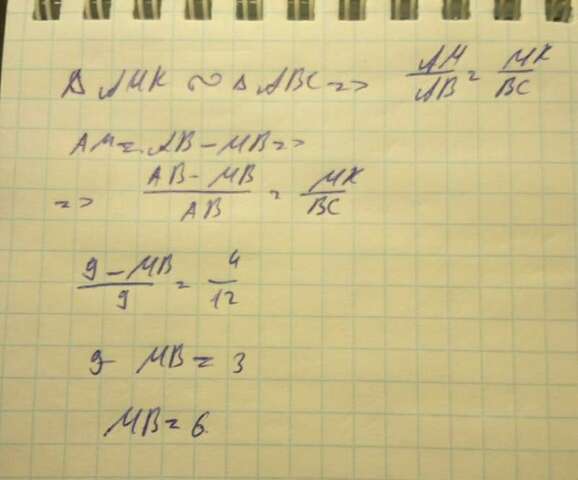 Δ AMK ∾ Δ ABC => AM/AB = MK/BC
AM = AB - MB =>
=> AB - MB/AB = MK/BC
9 - MB/9 = 4/12
9 - MB = 3
MB = 6